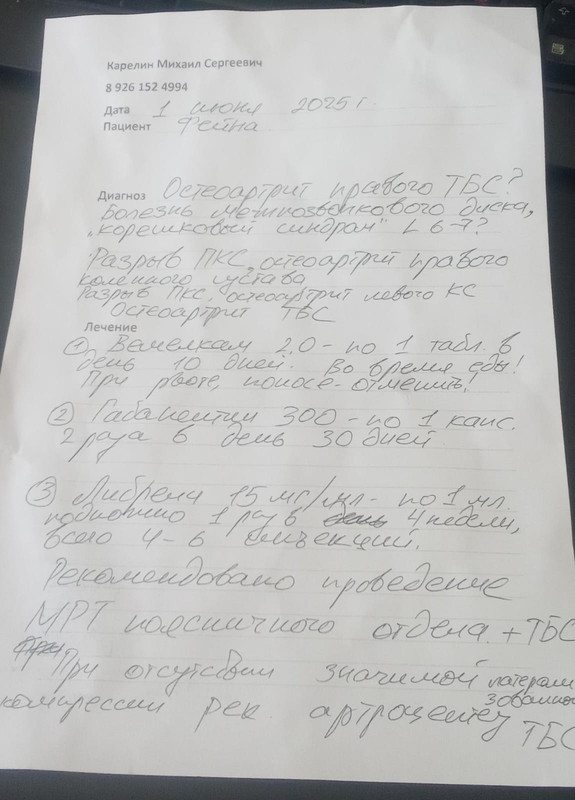 Карелин Михаил Сергеевич
8 926 152 4994
Дата 1 июня 2025 г.
Пациент Фейна
Диагноз Остеоартрит правого ТБС?
Болезнь межпозвонкового диска,
"корешковый синдром" L 6-7?
Разрыв ПКС, остеоартрит правого
коленного сустава
Разрыв ПКС, остеоартрит левого КС
Остеоартрит ТБС
Лечение
① Вемелкам 2.0 - по 1 табл. в
день 10 дней. Во время еды!
При рвоте, поносе - отменить!
② Габапентин 300 - по 1 капс.
2 раза в день 30 дней
③ Либрела 15 мг/мл - по 1 мл.
подкожно 1 раз в 4 недели,
всего 4-6 инъекций.
Рекомендовано проведение
МРТ поясничного отдела + ТБС
При отсутствии значимой латерали
зованной
компрессии рек. артроцентез
ТБС